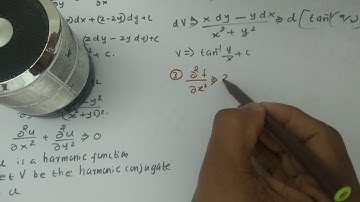 dx + (2-2y)dy + C
(2dy - 2dx) + C
+ C.
∂²u/∂x² + ∂²u/∂y² ⇒ 0
u is a harmonic function
et V be the harmonic conjugate
u
dV ⇒ x dy - y dx / x² + y² ⇒ d(tan⁻¹
V ⇒ tan⁻¹ y/x + C
② ∂²f/∂x² ⇒ 2